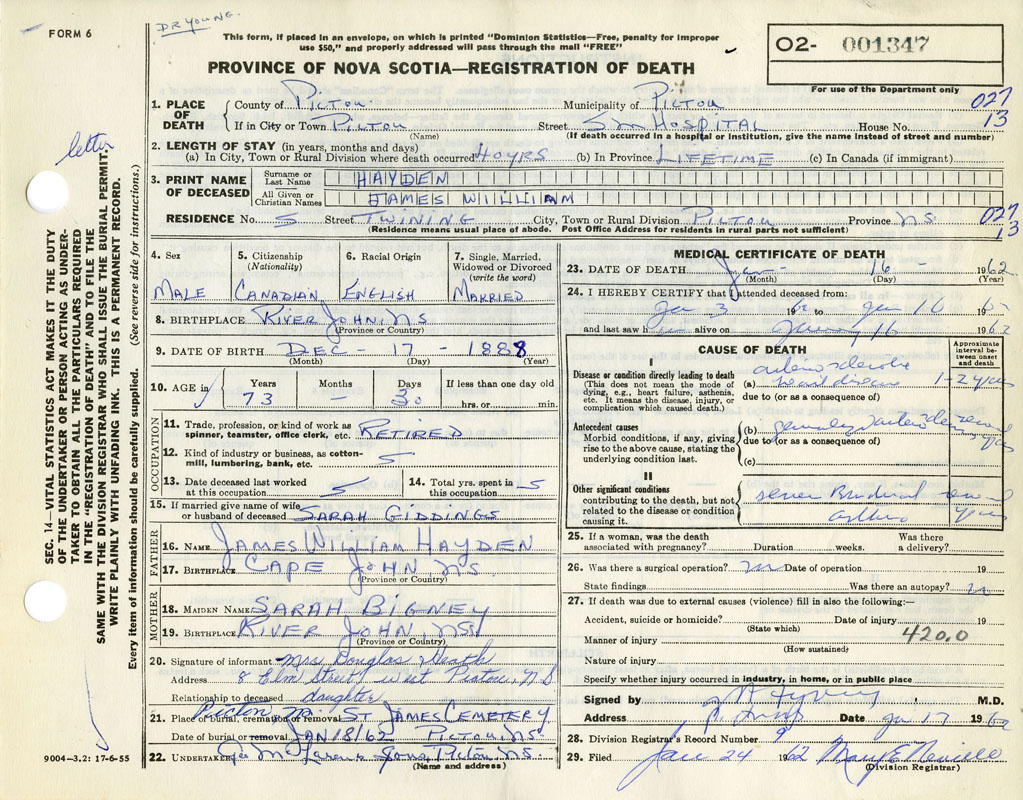 FORM 6
DR YOUNG.
This form, if placed in an envelope, on which is printed "Dominion Statistics—Free, penalty for improper
use $50," and properly addressed will pass through the mail "FREE"
PROVINCE OF NOVA SCOTIA—REGISTRATION OF DEATH
02- 001347
For use of the Department only
027
13
1. PLACE OF DEATH
County of Pictou Municipality of Pictou
If in City or Town Pictou Street SM Hospital House No.
(Name) (If death occurred in a hospital or Institution, give the name instead of street and number)
2. LENGTH OF STAY (in years, months and days)
(a) In City, Town or Rural Division where death occurred 40 YRS (b) In Province LIFETIME (c) In Canada (if immigrant)
3. PRINT NAME OF DECEASED
Surname or Last Name HAYDEN
All Given or Christian Names JAMES WILLIAM
RESIDENCE No. 5 Street TWINING City, Town or Rural Division PICTOU Province NS
027
13
(Residence means usual place of abode. Post Office Address for residents in rural parts not sufficient)
4. Sex
MALE
5. Citizenship (Nationality)
CANADIAN
6. Racial Origin
ENGLISH
7. Single, Married, Widowed or Divorced (write the word)
MARRIED
8. BIRTHPLACE RIVER JOHN, NS
(Province or Country)
9. DATE OF BIRTH DEC - 17 - 1888
(Month) (Day) (Year)
10. AGE in
Years Months Days If less than one day old
73 — 30 hrs. or min.
OCCUPATION
11. Trade, profession, or kind of work as spinner, teamster, office clerk, etc. RETIRED
12. Kind of industry or business, as cotton-mill, lumbering, bank, etc.
13. Date deceased last worked at this occupation
14. Total yrs. spent in this occupation
15. If married give name of wife or husband of deceased SARAH GIDDINGS
FATHER
16. NAME JAMES WILLIAM HAYDEN
17. BIRTHPLACE CAPE JOHN, NS
(Province or Country)
MOTHER
18. MAIDEN NAME SARAH BIGNEY
19. BIRTHPLACE RIVER JOHN, NS
(Province or Country)
20. Signature of informant Mrs Douglas Heath
Address 8 Elm Street, West Pictou, NS
Relationship to deceased daughter
21. Place of burial, cremation or removal Pictou ST JAMES CEMETERY
Date of burial or removal JAN 18/62 PICTOU, NS
22. UNDERTAKER Geo McLaren Pictou, NS.
(Name and address)
MEDICAL CERTIFICATE OF DEATH
23. DATE OF DEATH Jan - 16 - 1962
(Month) (Day) (Year)
24. I HEREBY CERTIFY that I attended deceased from:
Jan 3 62 to Jan 16 1962
and last saw h alive on January 16 1962
CAUSE OF DEATH
Approximate interval between onset and death
I
Disease or condition directly leading to death
(This does not mean the mode of dying, e.g., heart failure, asthenia, etc. It means the disease, injury, or complication which caused death.)
(a) heart disease 1-2 years
due to (or as a consequence of)
Antecedent causes
Morbid conditions, if any, giving rise to the above cause, stating the underlying condition last.
(b)
due to (or as a consequence of)
(c)
II
Other significant conditions
contributing to the death, but not related to the disease or condition causing it.
severe Bronchial
asthma
25. If a woman, was the death associated with pregnancy? Duration weeks. Was there a delivery?
26. Was there a surgical operation? no Date of operation 19
State findings Was there an autopsy? no
27. If death was due to external causes (violence) fill in also the following:—
Accident, suicide or homicide? Date of injury 19
(State which)
Manner of injury 420.0
(How sustained)
Nature of injury
Specify whether injury occurred in industry, in home, or in public place
Signed by M.D.
Address Date Jan 17 1962
28. Division Registrar's Record Number 9
29. Filed Jan 24 1962
(Division Registrar)
letter
SEC. 14—VITAL STATISTICS ACT MAKES IT THE DUTY
OF THE UNDERTAKER OR PERSON ACTING AS UNDER-
TAKER TO OBTAIN ALL THE PARTICULARS REQUIRED
IN THE "REGISTRATION OF DEATH" AND TO FILE THE
SAME WITH THE DIVISION REGISTRAR WHO SHALL ISSUE THE BURIAL PERMIT.
WRITE PLAINLY WITH UNFADING INK. THIS IS A PERMANENT RECORD.
Every item of information should be carefully supplied. (See reverse side for instructions.)
9004-3.2: 17-6-55